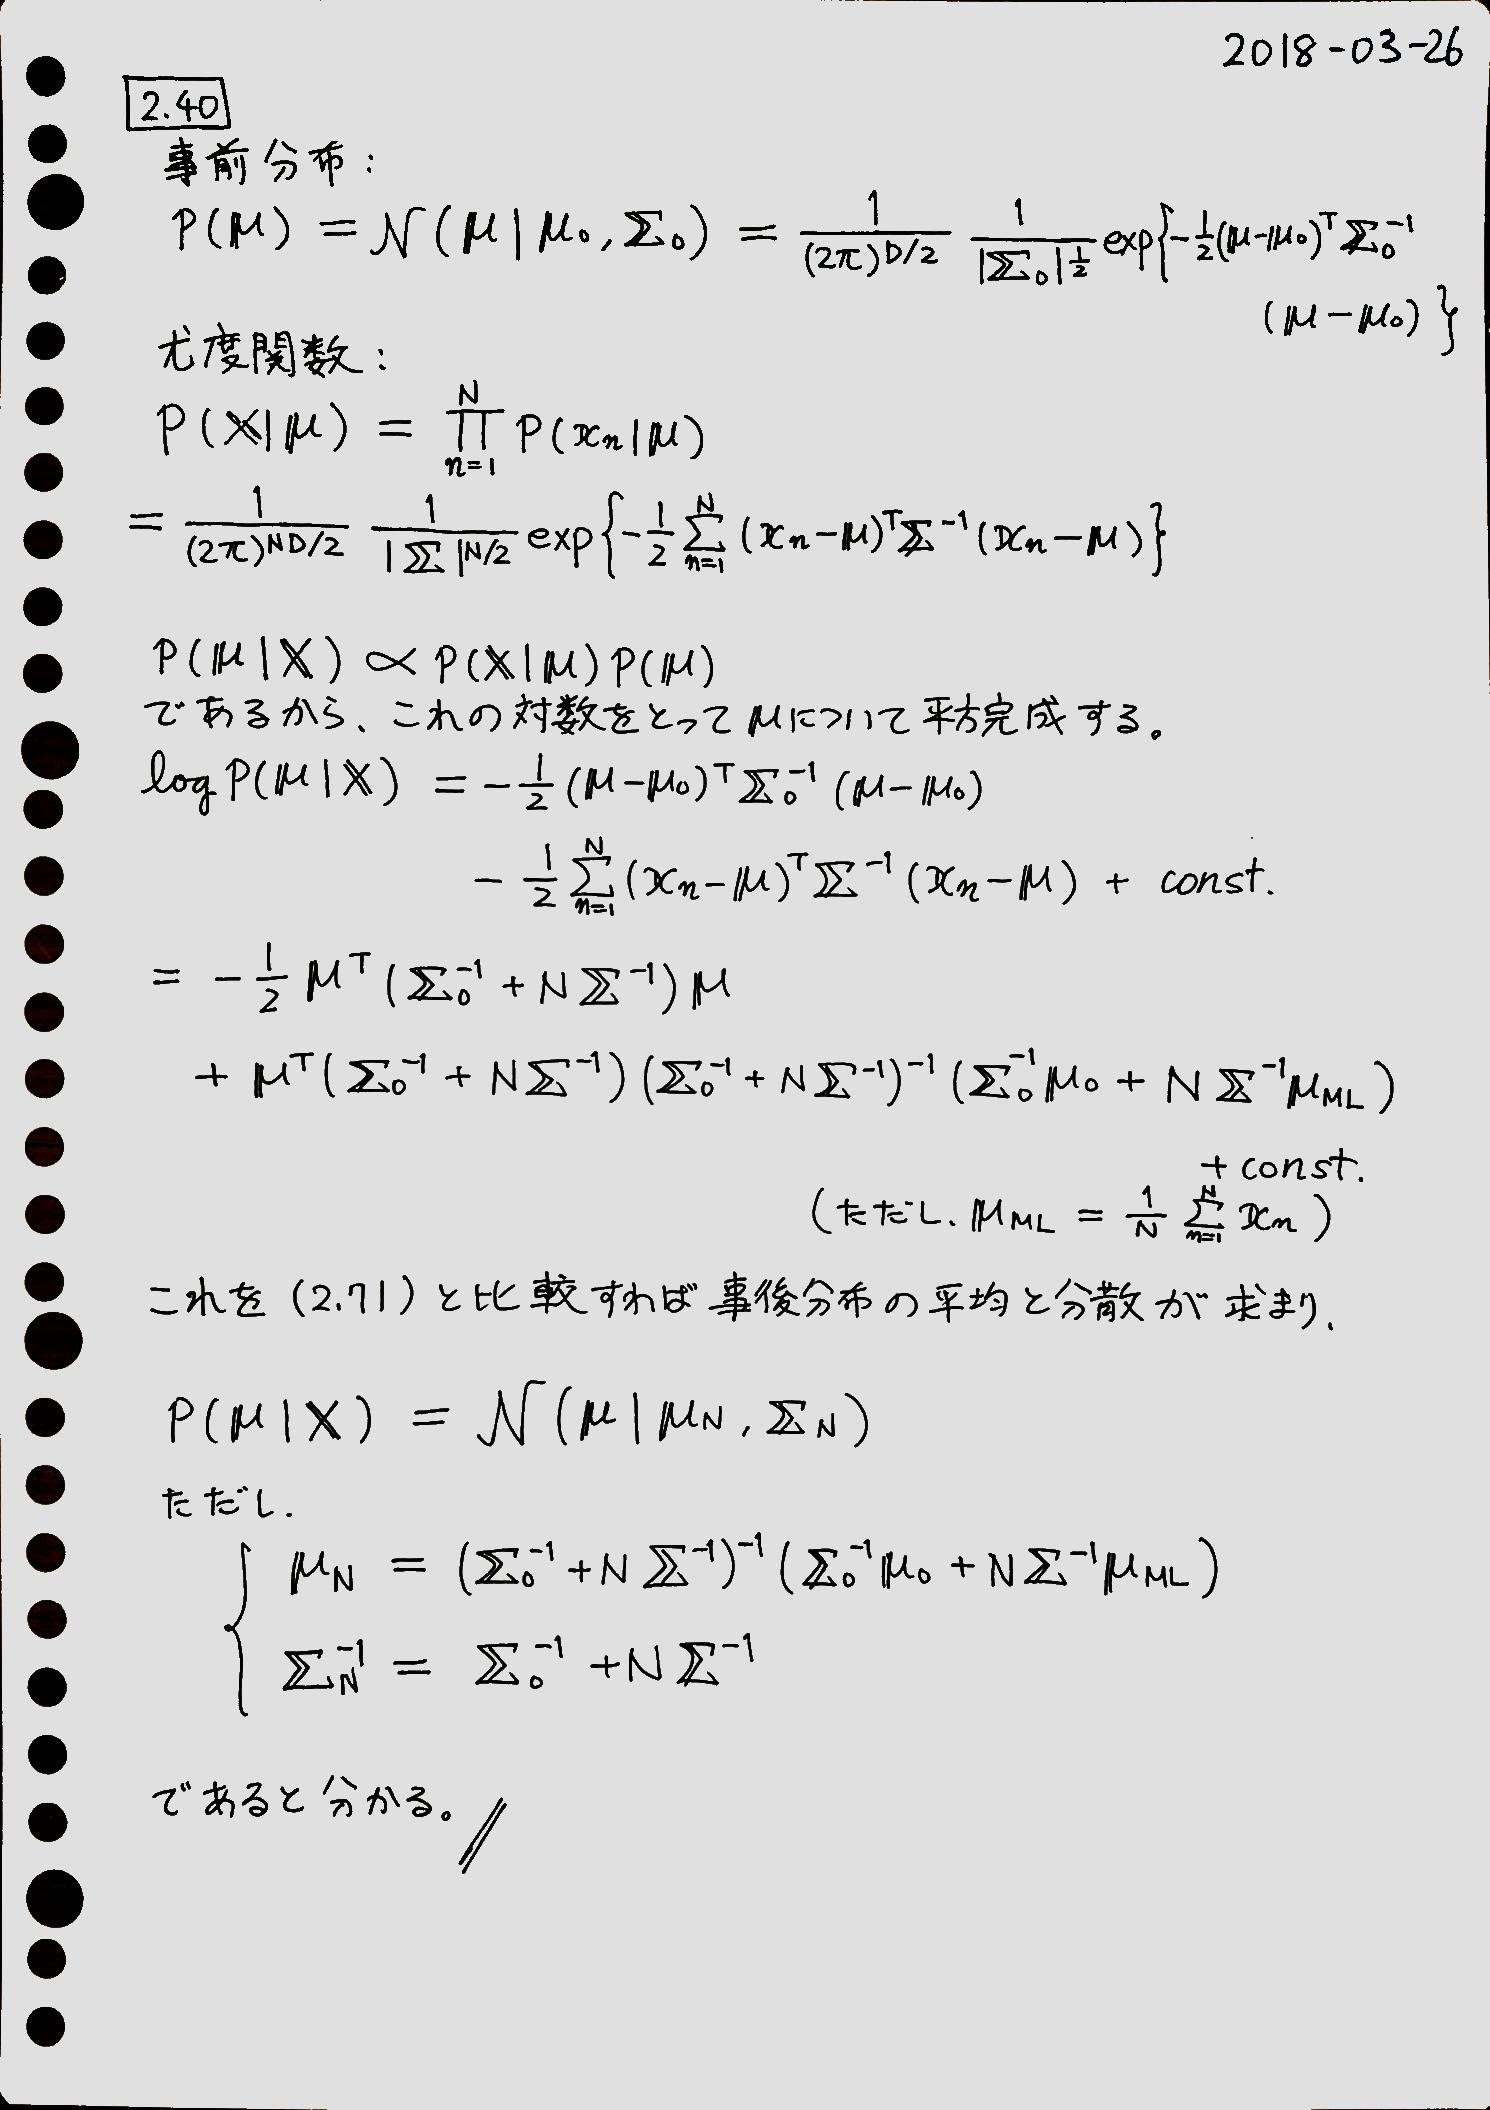 2018-03-26
2.40
事前分布:
P(μ) = N(μ|μ₀, Σ₀) = 1/(2π)^{D/2} 1/|Σ₀|^{1/2} exp{-1/2(μ-μ₀)^T Σ₀^{-1}
(μ-μ₀)}
尤度関数:
P(X|μ) = ∏_{n=1}^{N} P(x_n|μ)
= 1/(2π)^{ND/2} 1/|Σ|^{N/2} exp{-1/2 Σ_{n=1}^{N} (x_n-μ)^T Σ^{-1} (x_n-μ)}
P(μ|X) ∝ P(X|μ)P(μ)
であるから、これの対数をとってμについて平方完成する。
log P(μ|X) = -1/2 (μ-μ₀)^T Σ₀^{-1} (μ-μ₀)
- 1/2 Σ_{n=1}^{N} (x_n-μ)^T Σ^{-1} (x_n-μ) + const.
= -1/2 μ^T (Σ₀^{-1} + NΣ^{-1})μ
+ μ^T(Σ₀^{-1} + NΣ^{-1})(Σ₀^{-1} + NΣ^{-1})^{-1} (Σ₀^{-1}μ₀ + NΣ^{-1}μ_{ML})
+ const.
(ただし、μ_{ML} = 1/N Σ_{n=1}^{N} x_n)
これを (2.71) と比較すれば事後分布の平均と分散が求まり、
P(μ|X) = N(μ|μ_N, Σ_N)
ただし、
{ μ_N = (Σ₀^{-1} + NΣ^{-1})^{-1} (Σ₀^{-1}μ₀ + NΣ^{-1}μ_{ML})
Σ_N^{-1} = Σ₀^{-1} + NΣ^{-1}
であると分かる。//